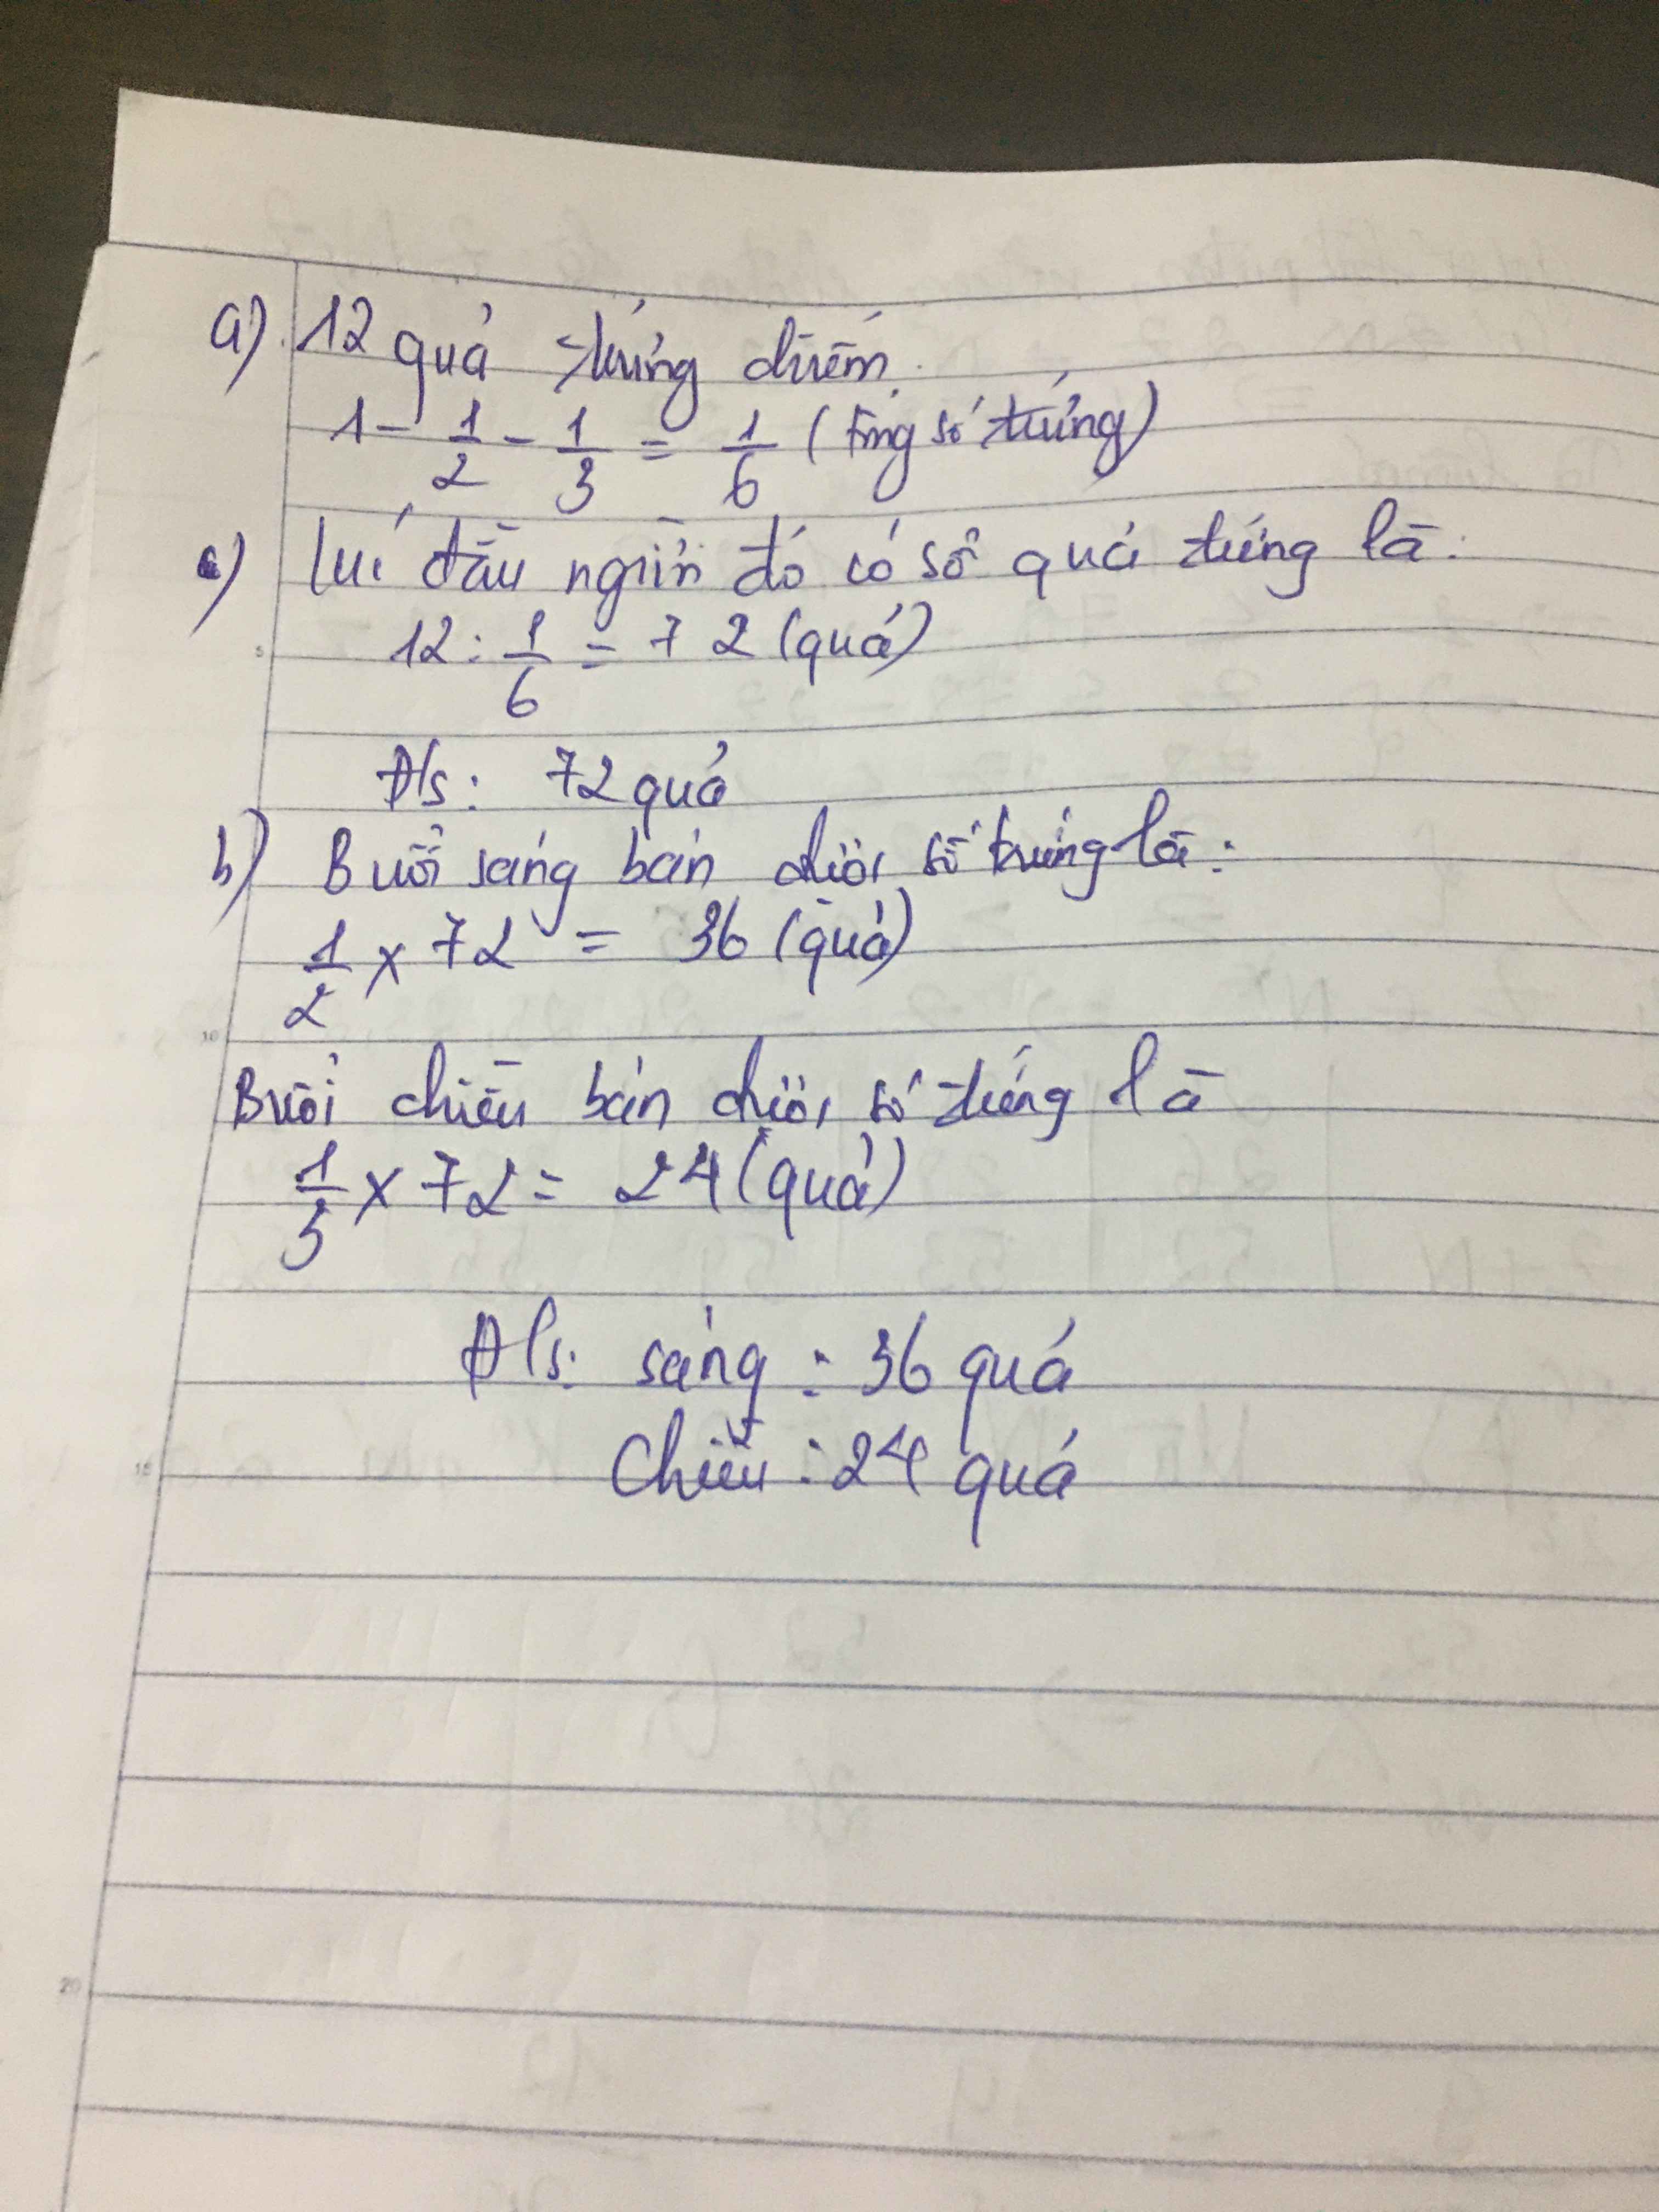 a) 12 quả trứng chiếm.
1 - 1/2 - 1/3 = 1/6 (tổng số trứng)
Lúc đầu người đó có số quả trứng là:
12 : 1/6 = 72 (quả)
Đ/s: 72 quả
b) Buổi sáng bán được số trứng là:
1/2 x 72 = 36 (quả)
Buổi chiều bán được số trứng là
1/3 x 72 = 24 (quả)
Đ/s: sáng : 36 quả
Chiều : 24 quả
5
10
15
20